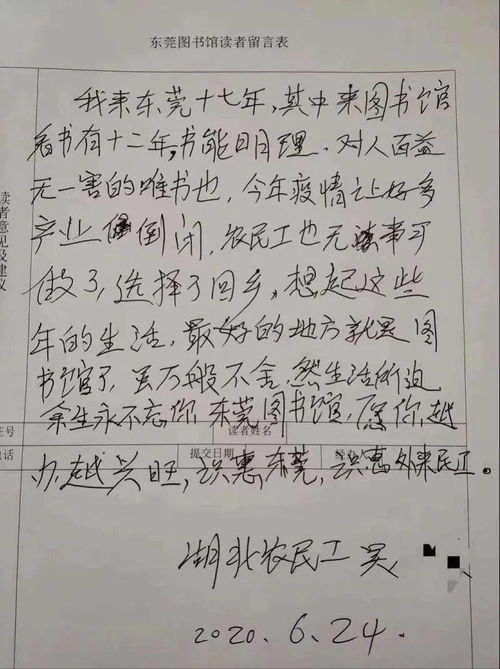 东莞图书馆读者留言表
我来东莞十七年，其中来图书馆
看书有十二年，书能明理，对人百益
无一害的唯书也，今年疫情让好多
产业倒闭，农民工也无事可
做了，选择了回乡，想起这些
年的生活，最好的地方就是图
书馆了，虽万般不舍，然生活所迫
余生永不忘你，东莞图书馆，愿你越
办越兴旺，识惠东莞，识惠外来民工。
读者意见及建议
证号
读者姓名
电话
提交日期
湖北农民工 吴
2020.6.24.